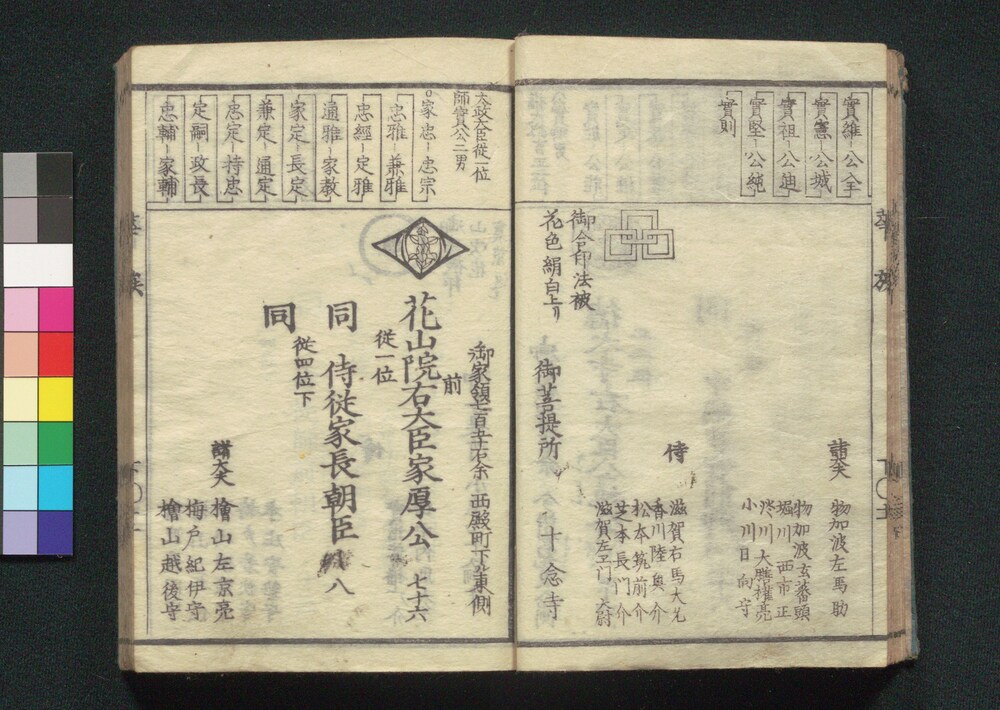 實維 公全
實憲 公城
實祖 公廸
實堅 公純
實則
御合印法被
花色絹白上リ
諸大夫
物加波左馬助
物加波玄蕃頭
堀川西市正
渋川大膳権亮
小川日向守
侍
滋賀右馬大允
香川陸奥介
松本筑前介
芝本長門介
滋賀左ヱ門大尉
御菩提所 十念寺
太政大臣従一位
師實公二男
家忠 忠宗
忠雅 兼雅
忠經 定雅
通雅 家教
家定 長定
兼定 通定
忠定 持忠
定嗣 政長
忠輔 家輔
御家領七百五十石余 西殿町下ル東側
前
花山院右大臣家厚公 七十六
従一位
同 侍従家長朝臣 八
従四位下
同
諸大夫
檜山左京亮
梅戸紀伊守
檜山越後守
華族